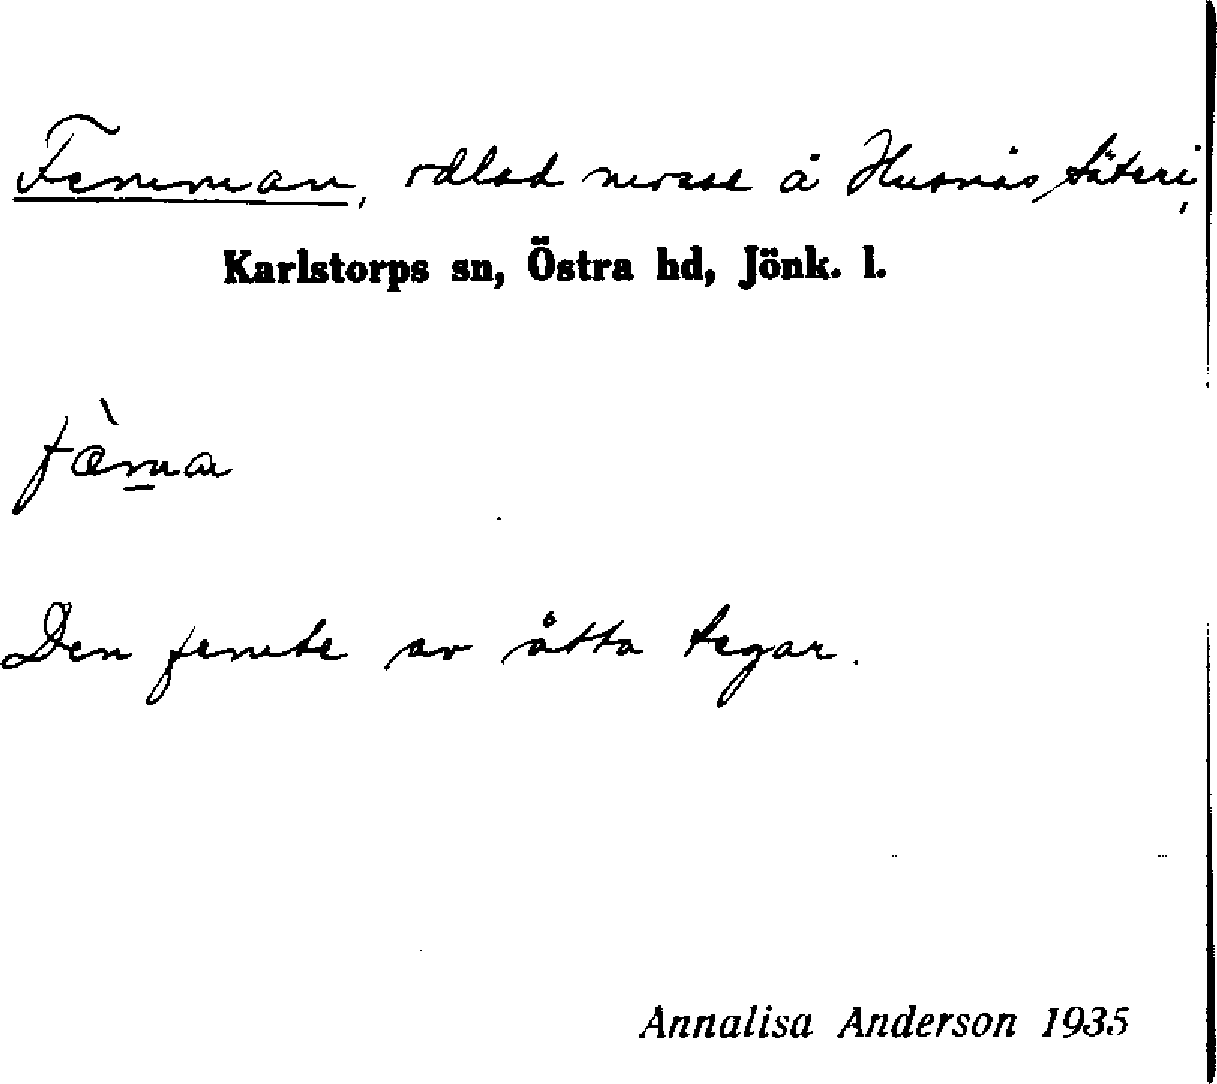 Femman, odlad mosse å Husnäs Säteri,
Karlstorps sn, Östra hd, Jönk. l.
fæ̀m̲a
Den femte av åtta tegar.
Annalisa Anderson 1935